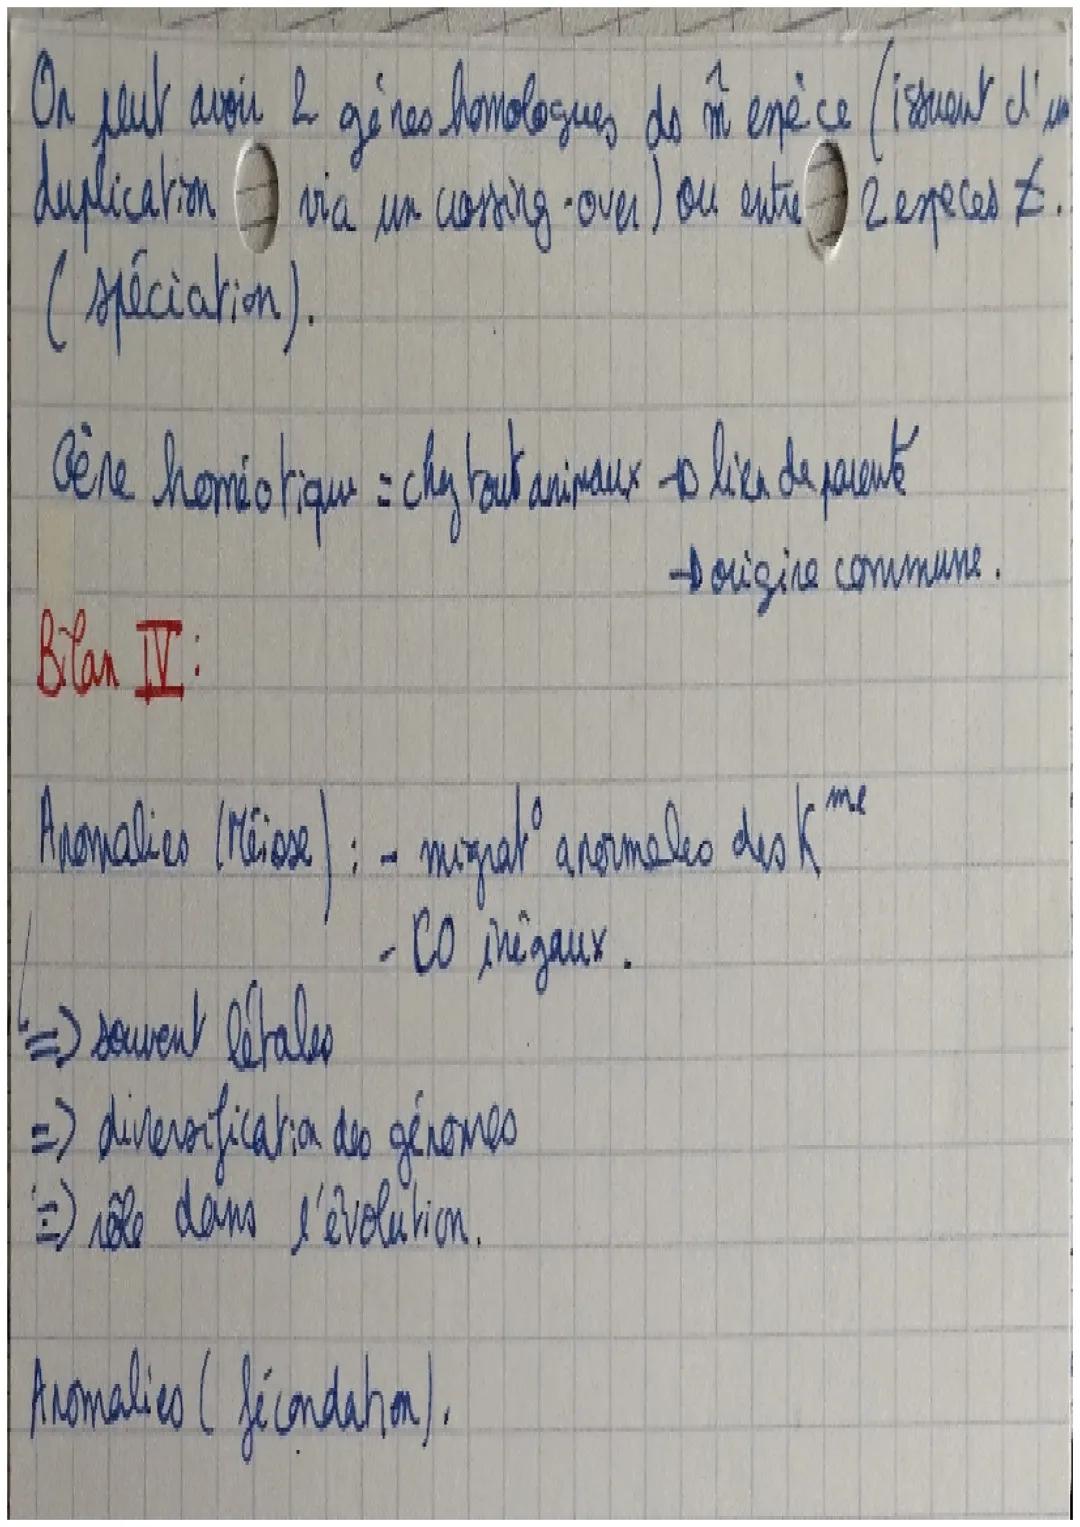 On peut avoir 2 gènes homologues ds m̂ espèce (issuent d'un
duplication via un crossing-over) ou entre 2 espèces ≠.
(spéciation).
Gène homéotique = chez tout animaux → lien de parenté
→ origine commune.
Bilan IV :
Anomalies (Méiose) : - migrat° anormales des K me
- CO inégaux.
=> souvent létales
=> diversification des génomes
=> rôle dans l'évolution.
Anomalies (fécondation).